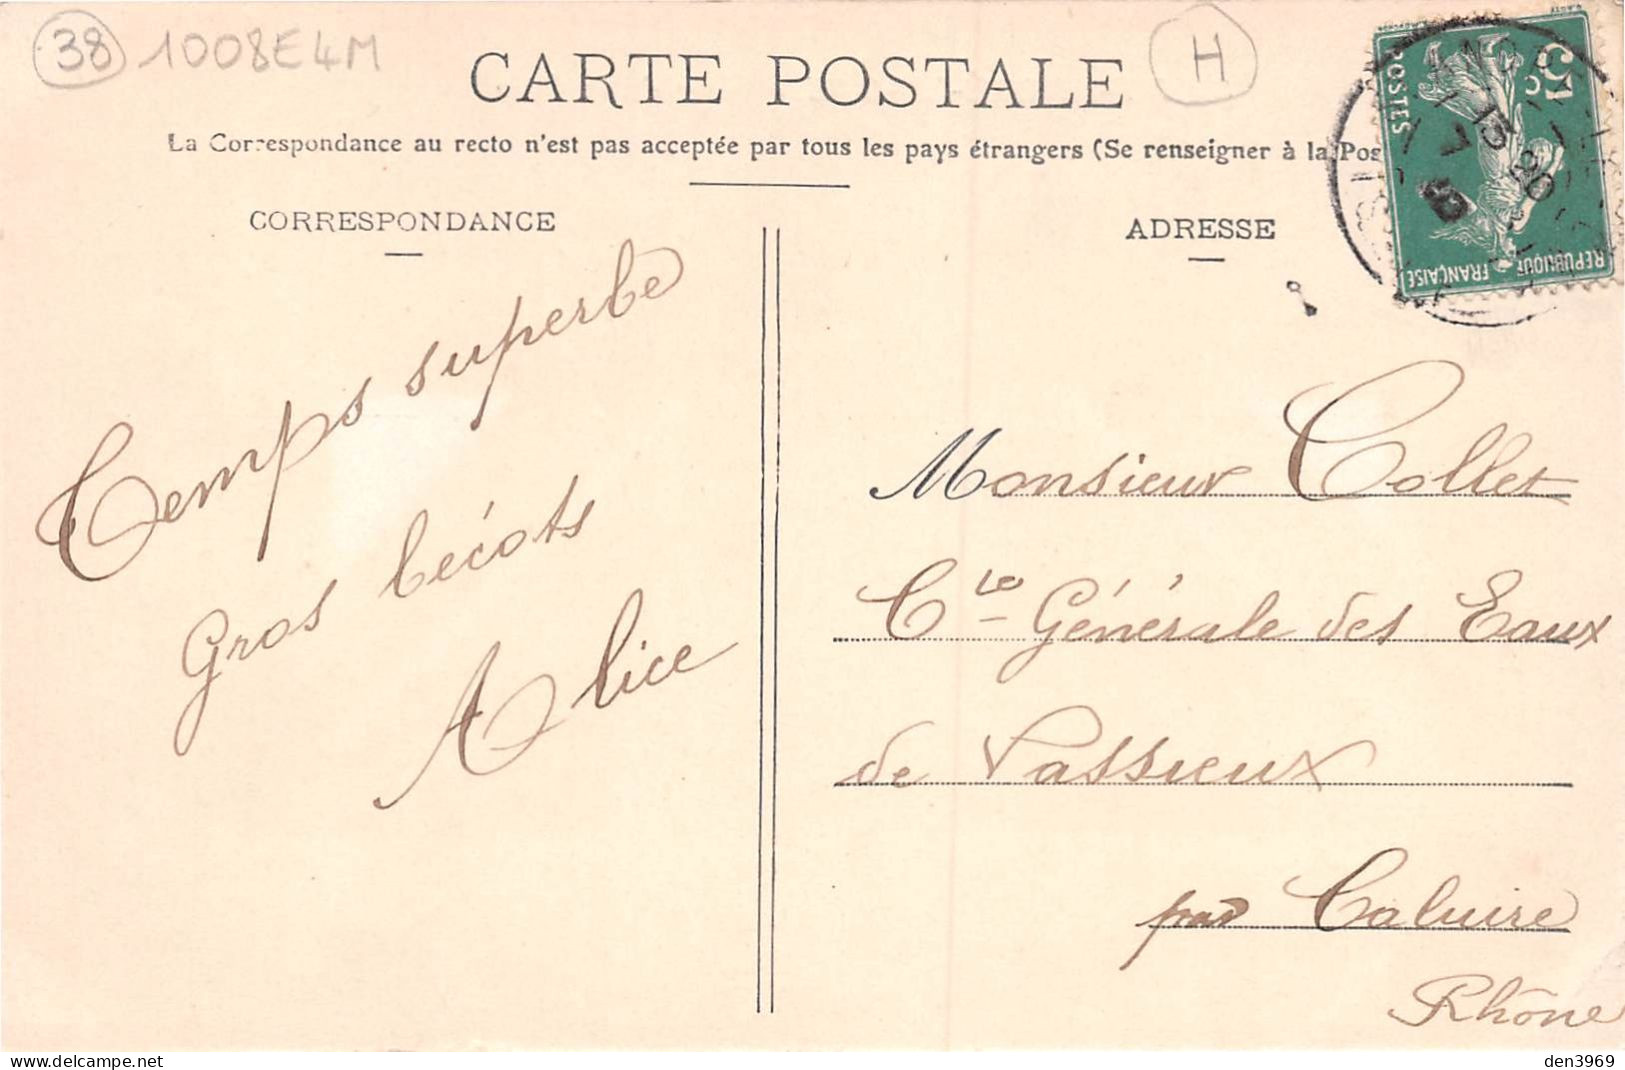 38 1008E4M
H
CARTE POSTALE
La Correspondance au recto n'est pas acceptée par tous les pays étrangers (Se renseigner à la Pos
CORRESPONDANCE
Temps superbe
Gros bécots
Alice
ADRESSE
5c
POSTES
REPUBLIQUE FRANÇAISE
Monsieur Collet
Cie Générale des Eaux
de Vassieux
par Caluire
Rhône
den3969